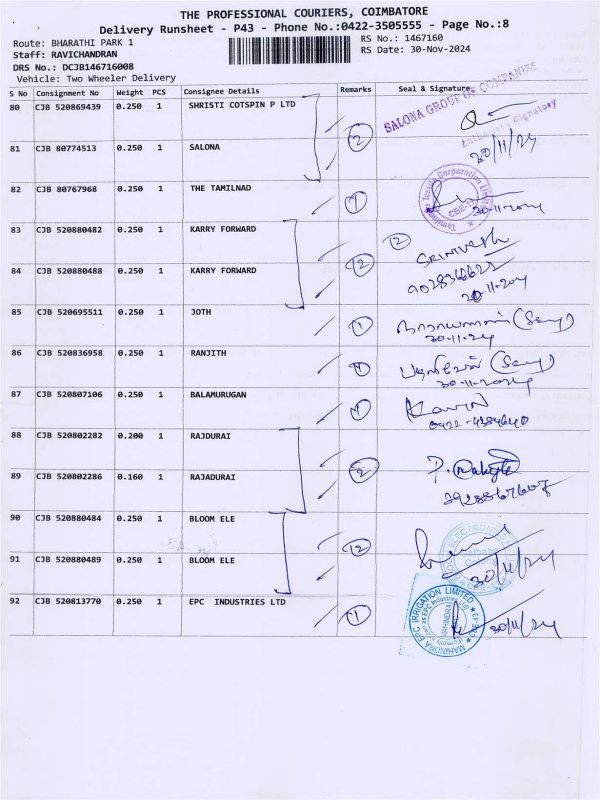 THE PROFESSIONAL COURIERS, COIMBATORE
Delivery Runsheet - P43 - Phone No.:0422-3505555 - Page No.:8
Route: BHARATHI PARK 1
RS No.: 1467160
Staff: RAVICHANDRAN
RS Date: 30-Nov-2024
DRS No.: DCJB146716008
Vehicle: Two Wheeler Delivery
S No Consignment No Weight PCS Consignee Details Remarks Seal & Signature
80 CJB 520869439 0.250 1 SHRISTI COTSPIN P LTD 2 SALONA GROUP OF COMPANIES
Authorised Signatory
30/11/24
81 CJB 80774513 0.250 1 SALONA
82 CJB 80767968 0.250 1 THE TAMILNAD 1 30-11-2024
83 CJB 520880482 0.250 1 KARRY FORWARD 2 2 SRINIVASH
84 CJB 520880488 0.250 1 KARRY FORWARD
30-11-2024
85 CJB 520695511 0.250 1 JOTH 1 நாராயணன்
30-11-24
86 CJB 520836958 0.250 1 RANJITH 1
30-11-2024
87 CJB 520807106 0.250 1 BALAMURUGAN 1
0422-4384640
88 CJB 520802282 0.200 1 RAJDURAI 2
89 CJB 520802286 0.160 1 RAJADURAI
90 CJB 520880484 0.250 1 BLOOM ELE 2
91 CJB 520880489 0.250 1 BLOOM ELE 30/11/24
92 CJB 520813770 0.250 1 EPC INDUSTRIES LTD 1 30/11/24
MAHINDRA EPC IRRIGATION LIMITED